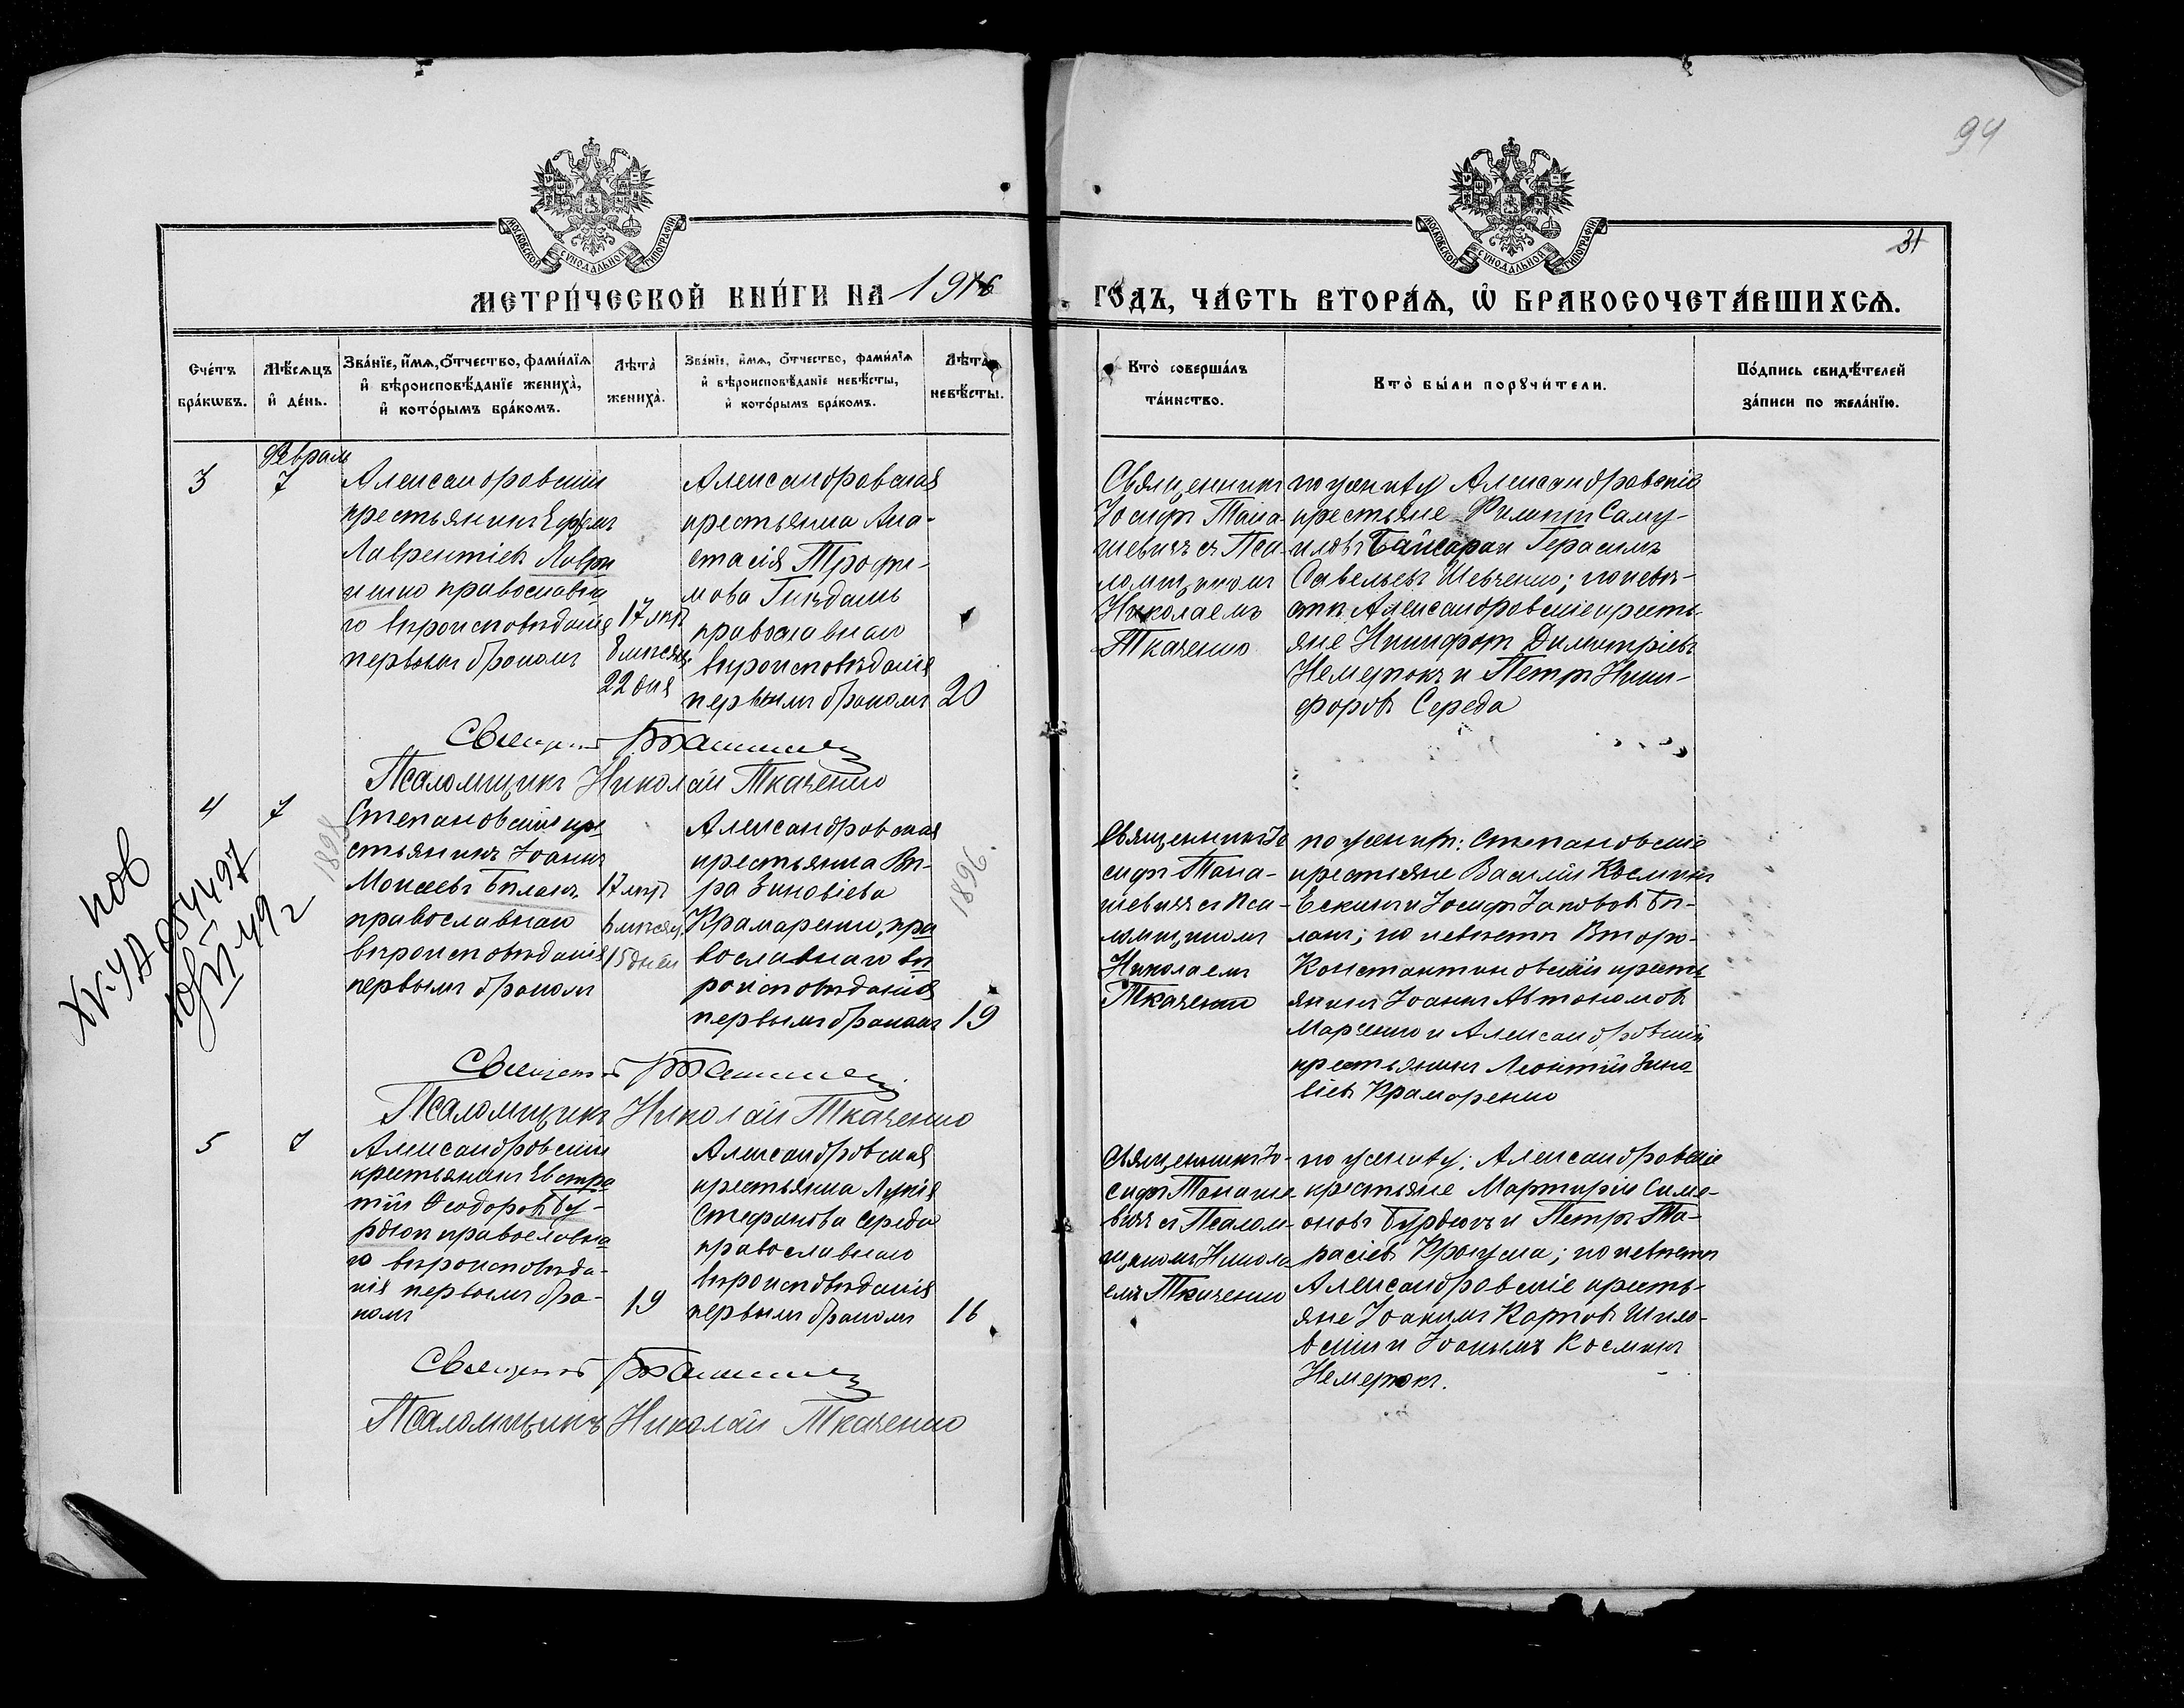 94
31
МОСКОВСКОЙ СѴНОДАЛЬНОЙ ТИПОГРАФІИ
МОСКОВСКОЙ СѴНОДАЛЬНОЙ ТИПОГРАФІИ
МЕТРИ́ЧЕСКОЙ КНИ́ГИ НА 1916
ГО́ДЪ, ЧА́СТЬ ВТОРА́Ѧ, Ѡ҆ БРАКОСОЧЕТА́ВШИХСѦ.
Сче́тъ бра́кѡвъ.
Мѣ́сѧцъ и҆ де́нь.
Зва́нїе, и҆́мѧ, ѻ҆́тчество, фами́лїѧ и҆ вѣроисповѣ́данїе жениха̀, и҆ кото́рымъ бра́комъ.
Лѣта̀ жениха̀.
Зва́нїе, и҆́мѧ, ѻ҆́тчество, фами́лїѧ и҆ вѣроисповѣ́данїе невѣ́сты, и҆ кото́рымъ бра́комъ.
Лѣта̀ невѣ́сты.
Кто̀ соверша́лъ та́инство.
Кто̀ бы́ли порꙋчи́тели.
По́дпись свидѣ́телей за́писи по жела́нїю.
3
Февраль
7
Александровскій
крестьянинъ Ефимъ
Лаврентіевъ Лаври
ненко православна
го вѣроисповѣданія
первымъ бракомъ
17 лѣтъ
8 мѣсяц.
22 дня
Александровская
крестьянка Ана-
стасія Трофи-
мова Гнѣдашъ
православнаго
вѣроисповѣданія
первымъ бракомъ
20
Священникъ
Іосифъ Тана-
шевичъ съ Пса-
ломщикомъ
Николаемъ
Ткаченко
по жениху Александровскіе
крестьяне Филиппъ Саму-
иловъ Байсара и Герасимъ
Савельевъ Шевченко; по невѣ-
стѣ Александровскіе кресть-
яне Никифоръ Димитріевъ
Немерюкъ и Петръ Ники-
форовъ Середа
Священникъ
Псаломщикъ Николай Ткаченко
4
7
Степановскій кре
стьянинъ Іоаннъ
Моисеевъ Биланъ,
православнаго
вѣроисповѣданія
первымъ бракомъ
1898
17 лѣтъ
6 мѣсяц.
15 дней
Александровская
крестьянка Вѣ-
ра Зиновіева
Крамаренко, пра
вославнаго вѣ
роисповѣданія
первымъ бракомъ
1896.
19
Священникъ Іо
сифъ Тана-
шевичъ съ Пса-
ломщикомъ
Николаемъ
Ткаченко
по женихѣ: Степановскіе
крестьяне Василій Косминъ
Ескинъ и Іосифъ Іаковлевъ Би-
ланъ; по невѣстѣ Второ-
Константиновскій кресть
янинъ Іоаннъ Автономовъ
Марченко и Александровскій
крестьянинъ Леонтій Зино-
віевъ Крамаренко
Священникъ
Псаломщикъ Николай Ткаченко
5
7
Александровскій
крестьянинъ Евстра
тій Ѳеодоровъ Бу-
рдюгъ православна
го вѣроисповѣда-
нія первымъ бра-
комъ
19
Александровская
крестьянка Лукія
Стефанова Середа
православнаго
вѣроисповѣданія
первымъ бракомъ
16
Священникъ Іо-
сифъ Танаше-
вичъ съ Псалом-
щикомъ Никола
емъ Ткаченко
по жениху: Александровскіе
крестьяне Мартирій Симе-
оновъ Бурдюгъ и Петръ Та-
расіевъ; по невѣстѣ
Александровскіе кресть-
яне Іоакимъ Карповъ Шило-
вскій и Іоакимъ Косминъ
Немерюкъ.
Священникъ
Псаломщикъ Николай Ткаченко
пов
054497
49 г